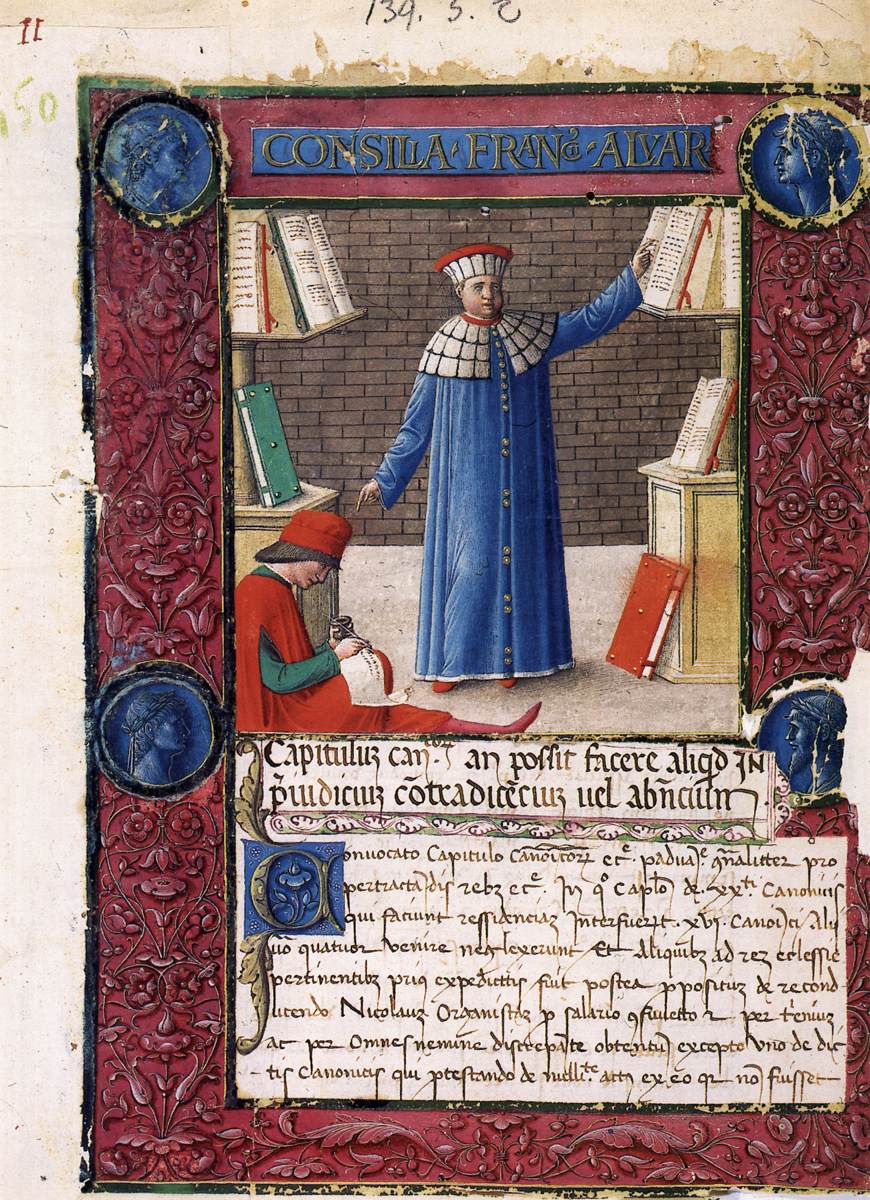 139. 5. 2
II
150
CONSILIA · FRANCI · ALVAR
Capituluz can.corz an possit facere aliqd IN
p̄iudiciuz cōtradicēciuz uel abn̄cium
Convocato Capitulo Canoīcorz etc̄. paduae. gn̄alitter pro
pertractādis rebz etc̄. In qo Caplo de. xxti. Canonicis
qui faciunt ressidēciaz Interfuerūt. xvi. Canoīci Alij
uo quatuor venire neglexerunt Et Aliquibz ad rez ecclessie
pertinentibz prius expedittis fuit postea ppositum de recond
ucendo Nicolauz Organistaz p salario gsuetto et per trieniuz
ac per Omnes nemine discrepāte obtentū excepto uno de dic
tis Canonicis qui ptestando de nullite. actus ex eo qr nō fuisset